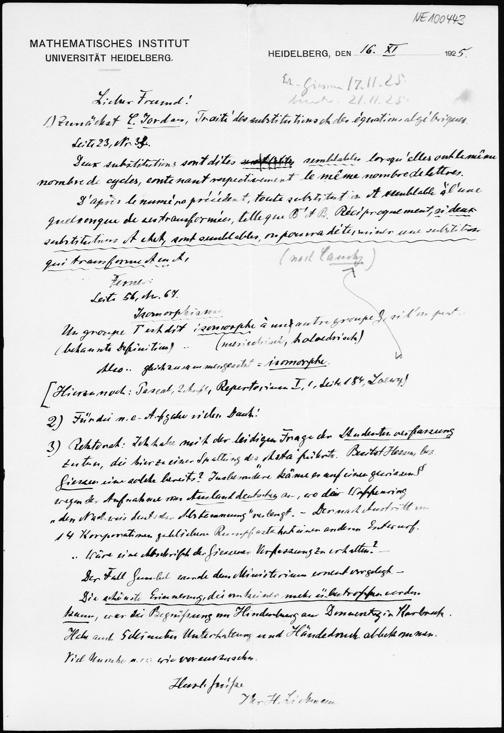 NE100443
MATHEMATISCHES INSTITUT
UNIVERSITÄT HEIDELBERG.
HEIDELBERG, DEN 16. XI 1925.
17.11.25
21.11.25
Lieber Freund!
1) Zunächst C. Jordan, Traité des substitutions et des équations algébriques.
Seite 23, Nr. 32.
Deux substitutions sont dites semblables lorsqu'elles ont le même
nombre de cycles, contenant respectivement le même nombre de lettres.
D'après le numéro précédent, toute substitution A est semblable à l'une
quelconque de ses transformées, telle que B⁻¹AB. Réciproquement, si deux
substitutions A et A, sont semblables, on pourra déterminer une substitution
qui transforme A en A,
(nach Cauchy)
Ferner:
Seite 56, Nr. 67.
Isomorphisme
Un groupe Γ est dit isomorphe à un autre groupe G, si l'on peut
(bekannte Definition) (meriedrisch, holoedrisch)
Also: = isomorphe.
[Hierzu noch: Pascal, Repertorium I, 1, Seite 184, Loewy]
2) Für die Aufgabe vielen Dank!
3) Rektorat: Ich habe mich der leidigen Frage der Studentenverfassung
zu tun, die hier zu einer Spaltung des Asta führte. Besitzt Hessen, bez.
Giessen eine solche bereits? Insbesondere käme es auf einen gewissen §
wegen der Aufnahme von Auslanddeutschen an, wo der Waffenring
"den Nachweis deutscher Abstammung" verlangt. – Der nach Austritt von
14 Korporationen gebliebene Rumpfasta hat einen anderen Entwurf.
Wäre eine Abschrift der Giessener Verfassung zu erhalten? –
Der Fall Gumbel wurde dem Ministerium erneut vorgelegt –
Die schönste Erinnerung, die von keiner mehr übertroffen werden
kann, war die Begrüssung von Hindenburg am Donnerstag in Karlsruhe.
Habe auch Unterhaltung und Händedruck abbekommen.
Viel wie vorauszusehen.
Herzl. Grüsse
Ihr H. Liebmann